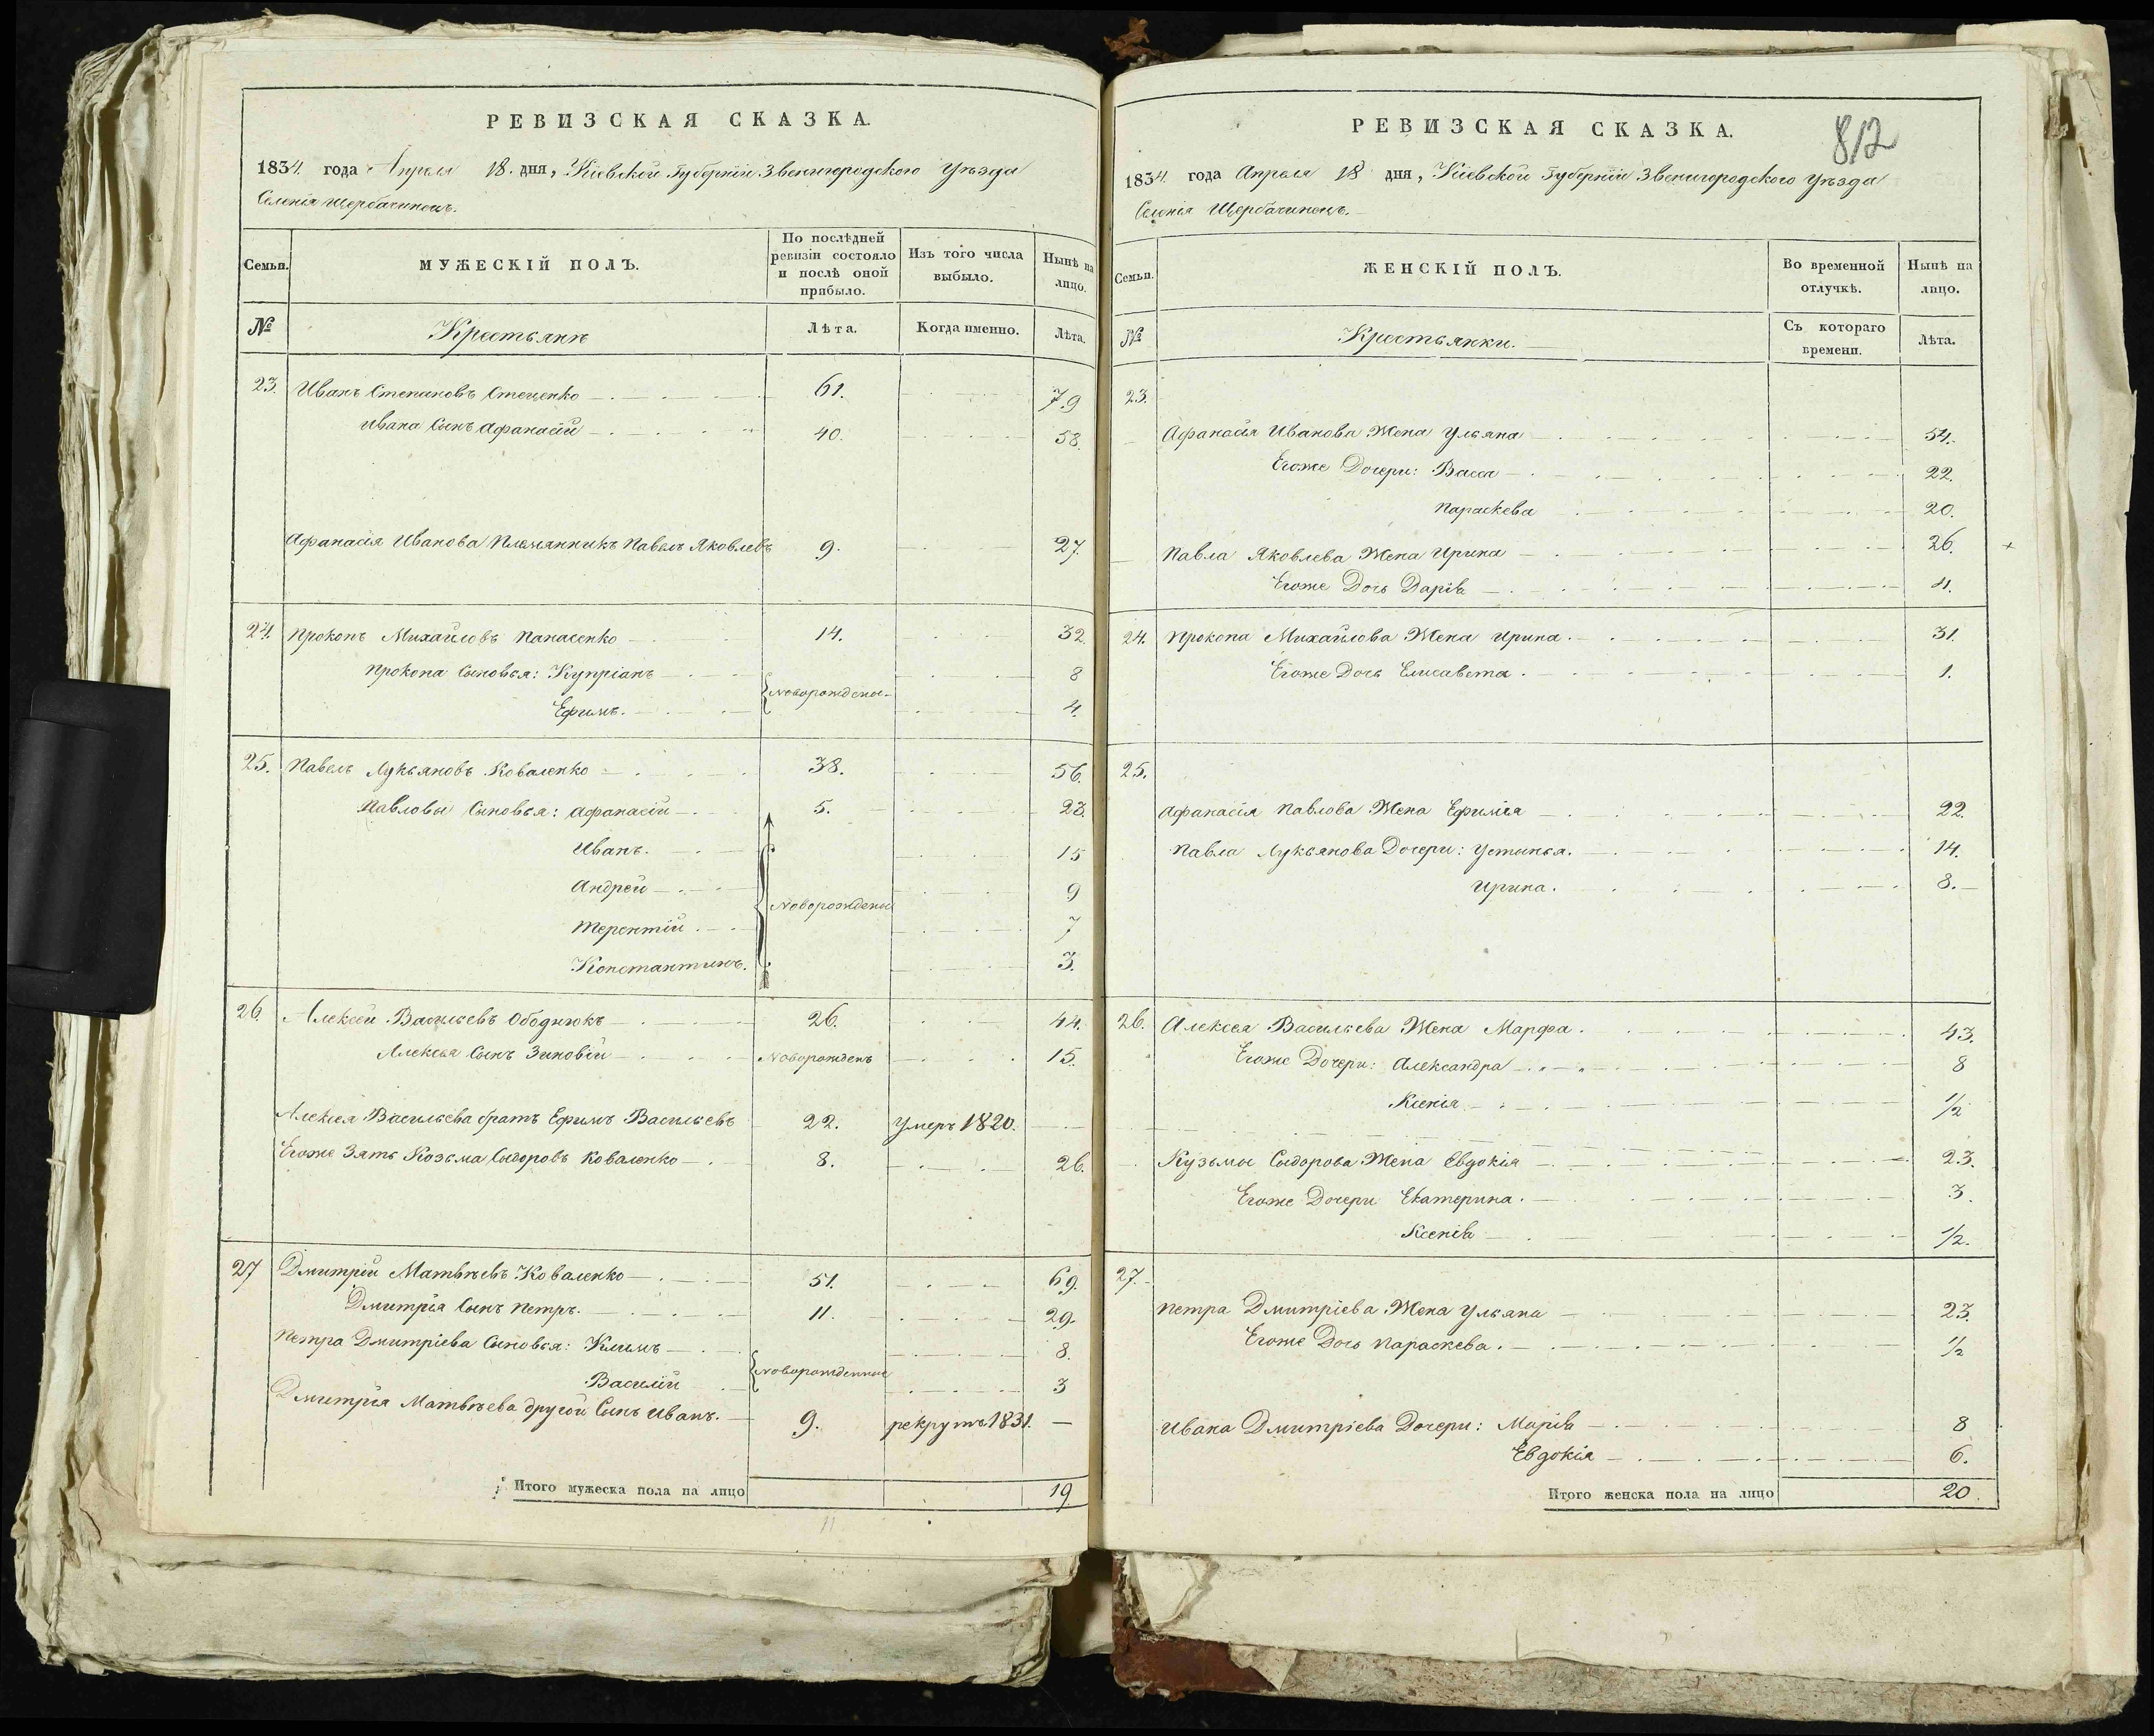 РЕВИЗСКАЯ СКАЗКА.
1834 года Апреля 18 дня, Кіевской Губерніи Звенигородского Уѣзда
Селенія Щербачинецъ.
Семьи. МУЖЕСКІЙ ПОЛЪ. По послѣдней ревизіи состояло и послѣ оной прибыло. Изъ того числа выбыло. Нынѣ на лицо.
№ Крестьянъ Лѣта. Когда именно. Лѣта.
23. Иванъ Степановъ Стеценко 61. 79
Ивана Сынъ Афанасій 40. 58.
Афанасія Иванова Племянникъ Павелъ Яковлевъ 9. 27.
24. Прокопъ Михайловъ Панасенко 14. 32
Прокопа Сыновья: Купріанъ 8
Новорождены
Ефимъ. 4.
25. Павелъ Лукьяновъ Коваленко 38. 56.
Павловы Сыновья: Афанасій 5. 23.
Иванъ. 15
Андрей 9
Новорождены
Терентій 7
Константинъ. 3.
26. Алексѣй Васильевъ Ободнюкъ 26. 44.
Алексѣя Сынъ Зиновій Новорожденъ 15.
Алексѣя Васильева братъ Ефимъ Васильевъ 22. умеръ 1820.
Егоже Зять Козьма Сыдоровъ Коваленко 8. 26.
27 Дмитрій Матвѣевъ Коваленко 51. 69.
Дмитрія Сынъ Петръ. 11. 29.
Петра Дмитріева Сыновья: Климъ 8.
Новорожденные
Василій 3
Дмитрія Матвѣева другой Сынъ Иванъ. 9. рекрутъ 1831. —
Итого мужеска пола на лицо 19
11
812
РЕВИЗСКАЯ СКАЗКА.
1834 года Апреля 18 дня, Кіевской Губерніи Звенигородского Уѣзда
Селенія Щербачинецъ.
Семьи. ЖЕНСКІЙ ПОЛЪ. Во временной отлучкѣ. Нынѣ на лицо.
№ Крестьянки. Съ котораго времени. Лѣта.
23.
Афанасія Иванова Жена Ульяна 54.
Егоже Дочери: Васса 22.
Параскева 20.
Павла Яковлева Жена Ирина 26. +
Егоже Дочь Дарія 4.
24. Прокопа Михайлова Жена Ирина. 31.
Егоже Дочь Елисавета. 1.
25.
Афанасія Павлова Жена Ефимія 22.
Павла Лукьянова Дочери: Устинья. 14.
Ирина. 8.
26. Алексѣя Васильева Жена Марфа. 43.
Егоже Дочери: Александра 8
Ксенія 1/2
Кузьмы Сыдорова Жена Евдокія 23.
Егоже Дочери Екатерина. 3.
Ксенія 1/2.
27.
Петра Дмитріева Жена Ульяна 23.
Егоже Дочь Параскева. 1/2
Ивана Дмитріева Дочери: Марія 8
Евдокія 6.
Итого женска пола на лицо 20.